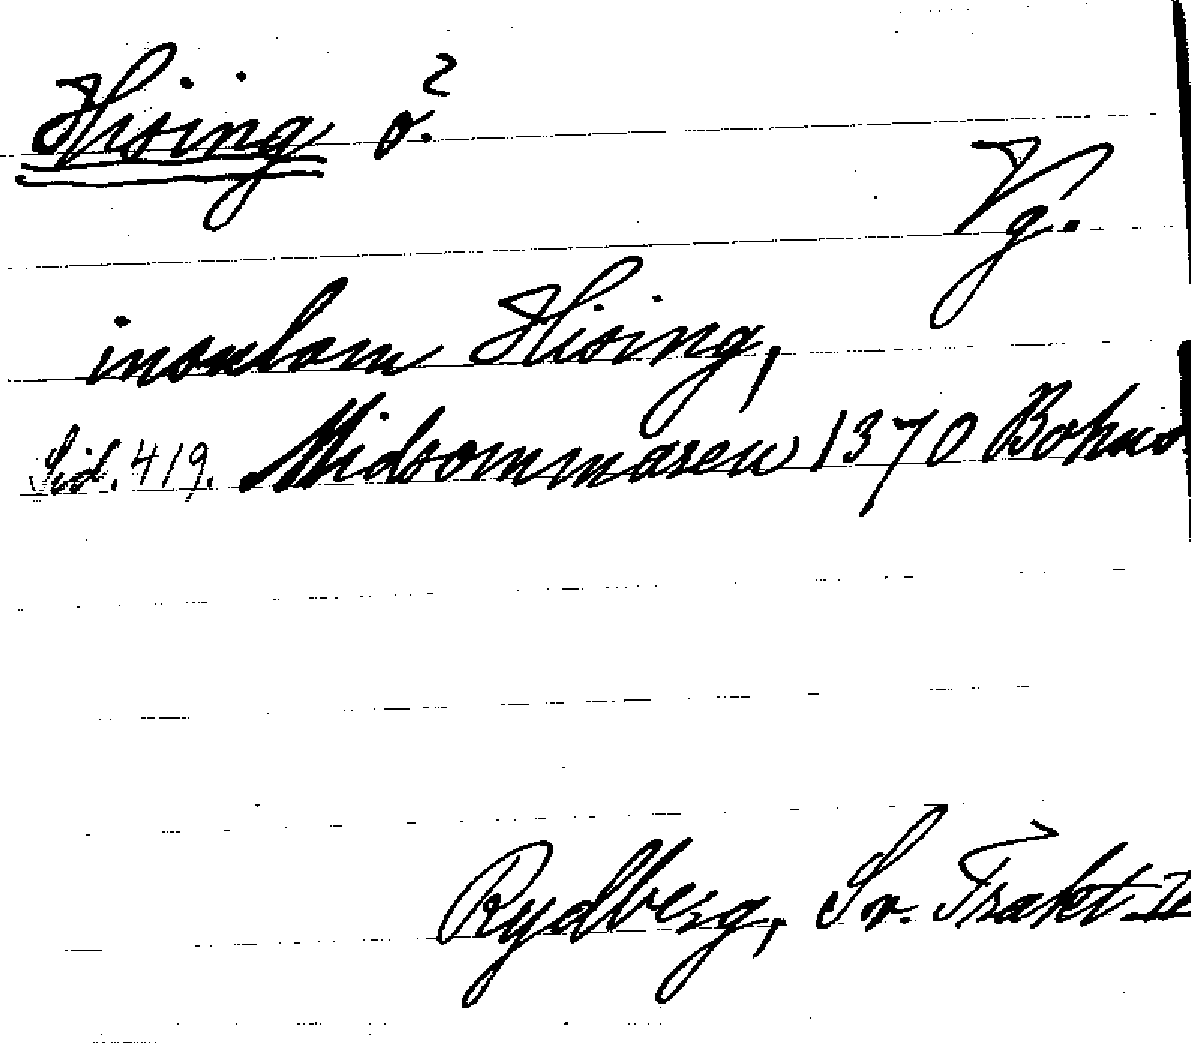 Hising ö.²
Vg.
inonlom Hising,
Sid. 419. Midsommaren 1370 Bohus
Rydberg, Sv. Trakt. II